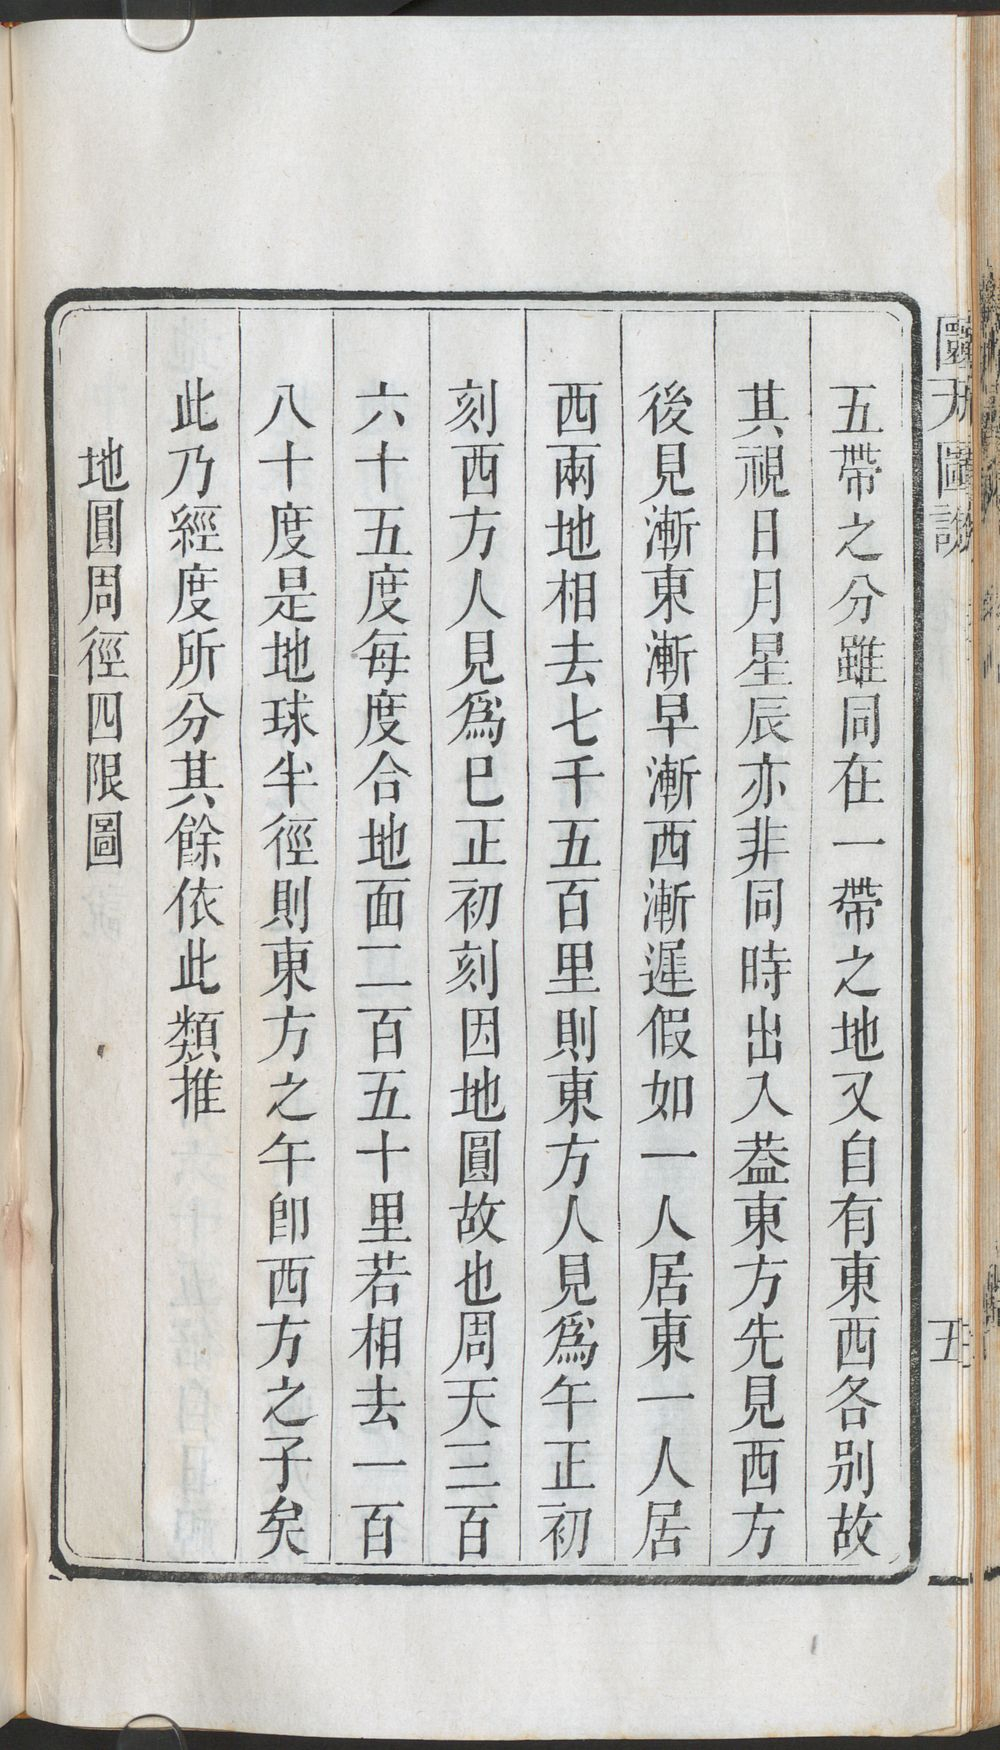 五帶之分雖同在一帶之地又自有東西各別故
其視日月星辰亦非同時出入葢東方先見西方
後見漸東漸早漸西漸遲假如一人居東一人居
西兩地相去七千五百里則東方人見爲午正初
刻西方人見爲巳正初刻因地圓故也周天三百
六十五度每度合地面二百五十里若相去一百
八十度是地球半徑則東方之午卽西方之子矣
此乃經度所分其餘依此類推
地圓周徑四限圖